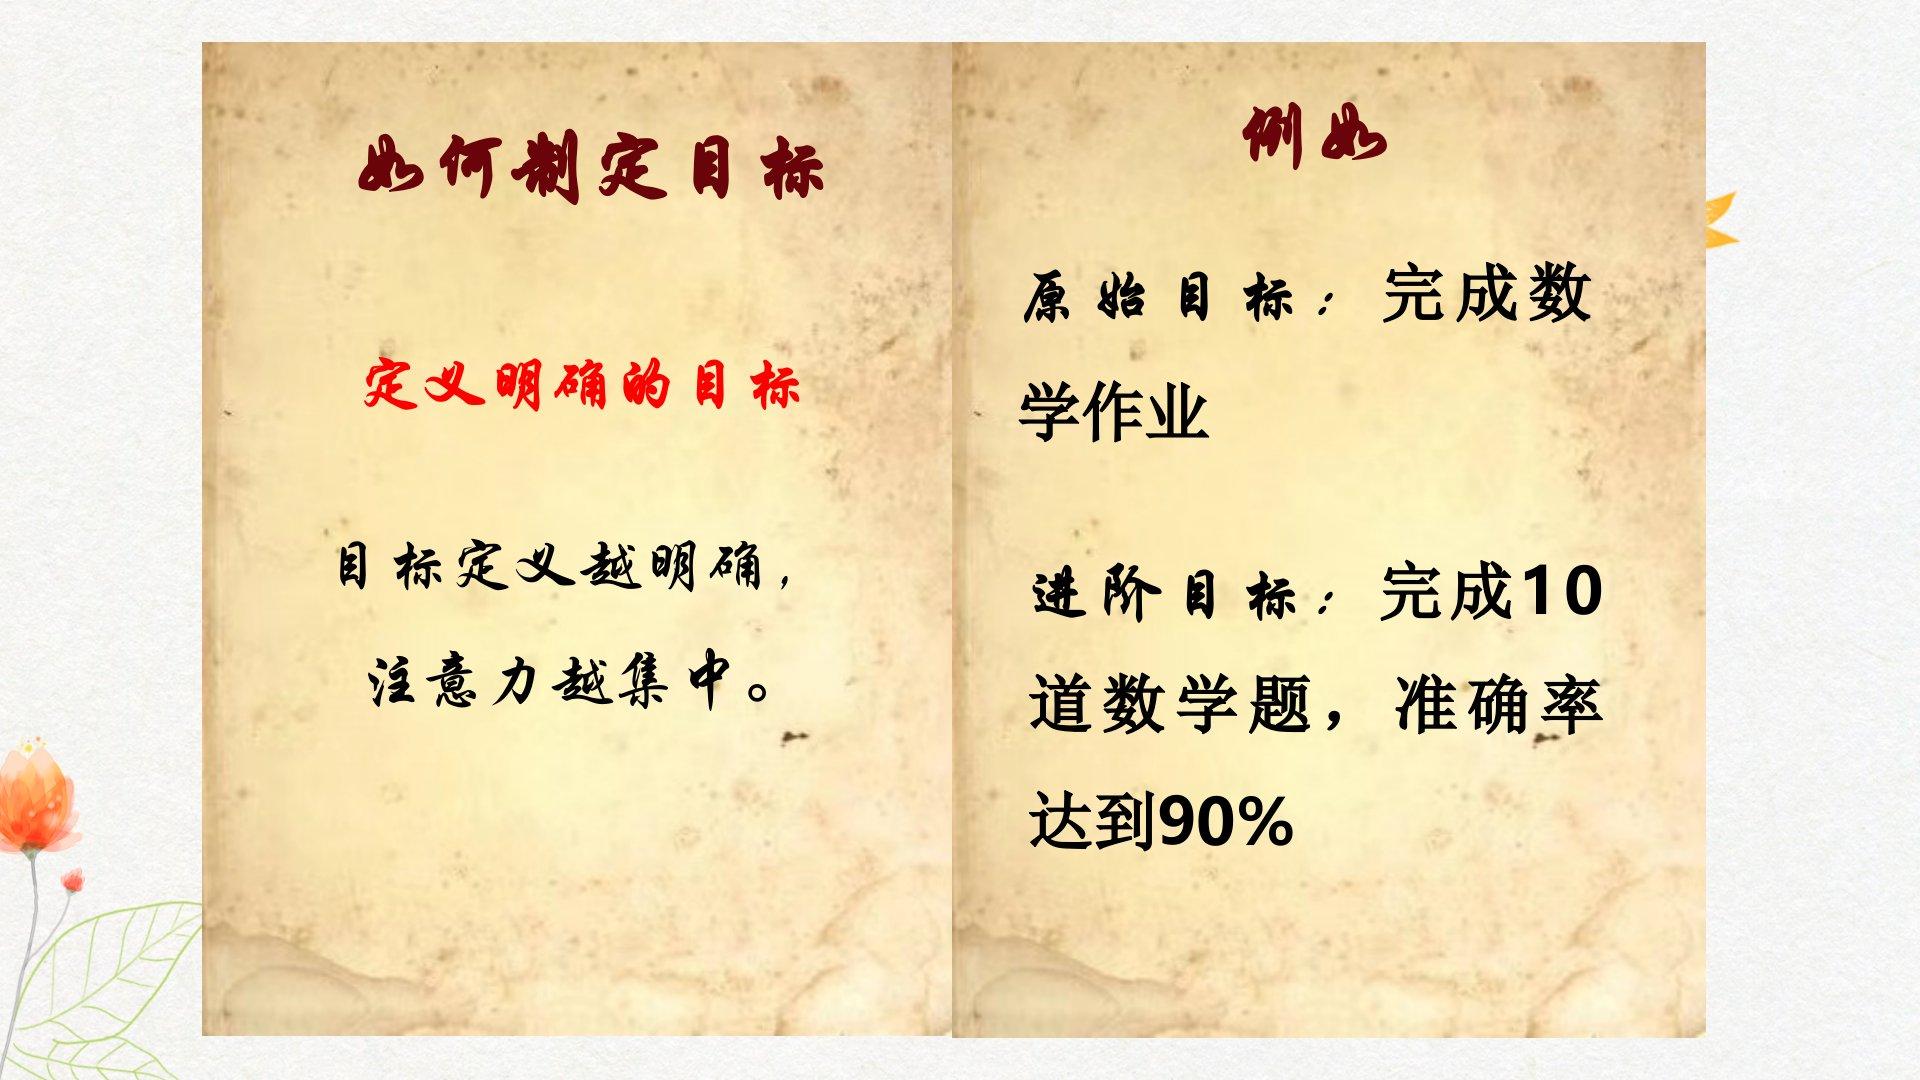 如何制定目标
定义明确的目标
目标定义越明确，
注意力越集中。
例如
原始目标：完成数
学作业
进阶目标：完成10
道数学题，准确率
达到90%